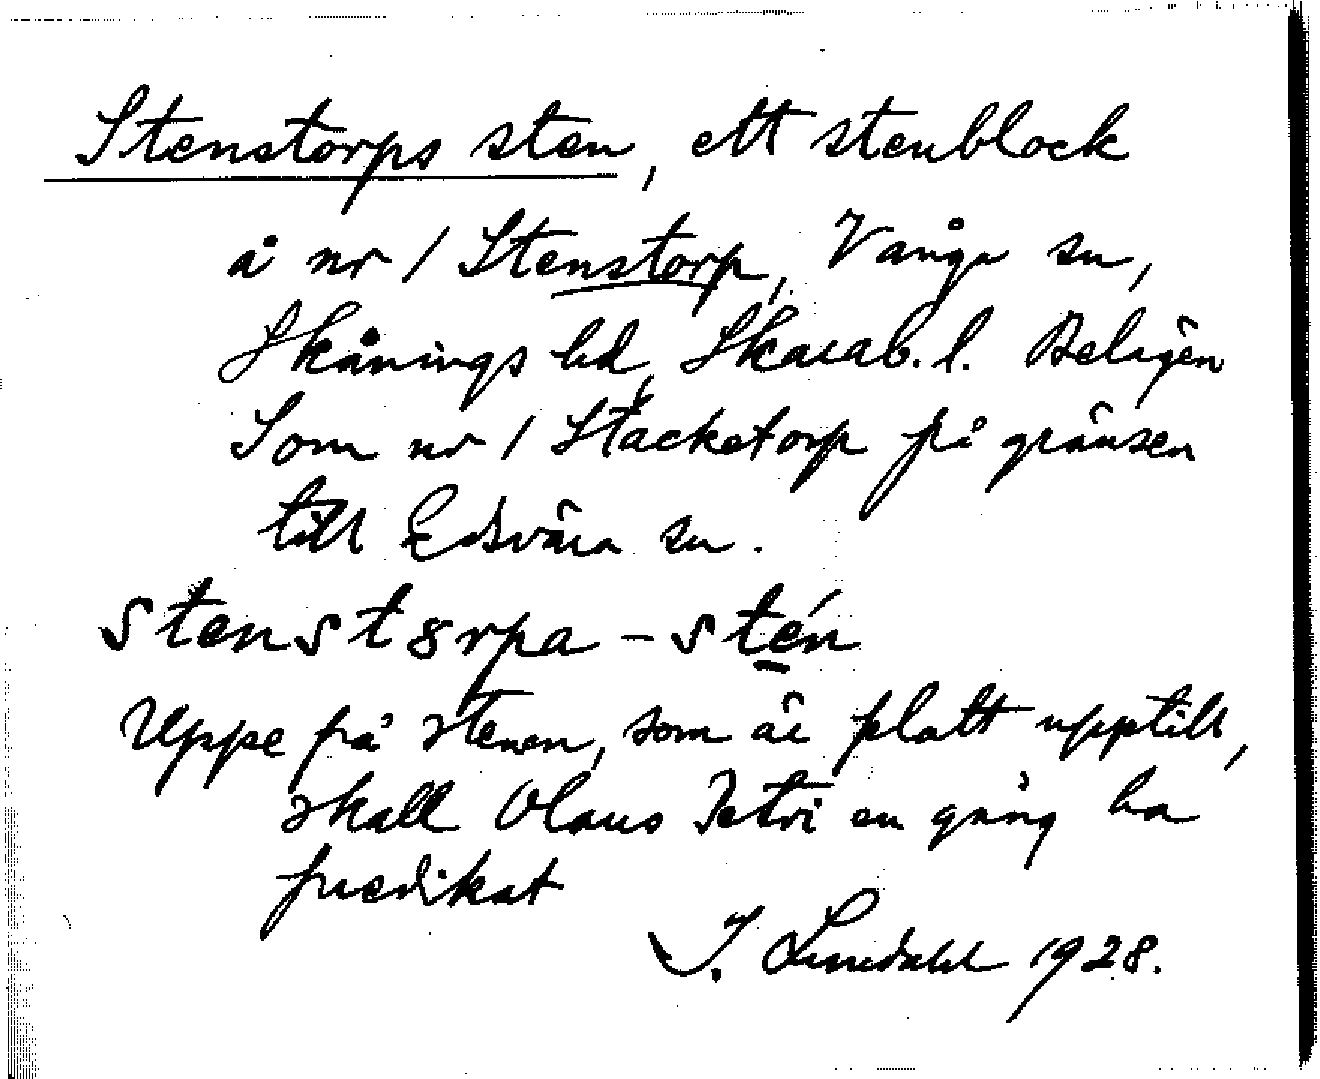 Stenstorps sten, ett stenblock
å nr 1 Stenstorp, Vånga sn,
Skånings hd, Skarab. l. Belägen
Som nr 1 Stacketorp på gränsen
till Edsvära sn.
stenst8rpa-stén
Uppe på stenen, som är platt upptill,
skall Olaus Petri en gång ha
predikat
J. Lindahl 1928.